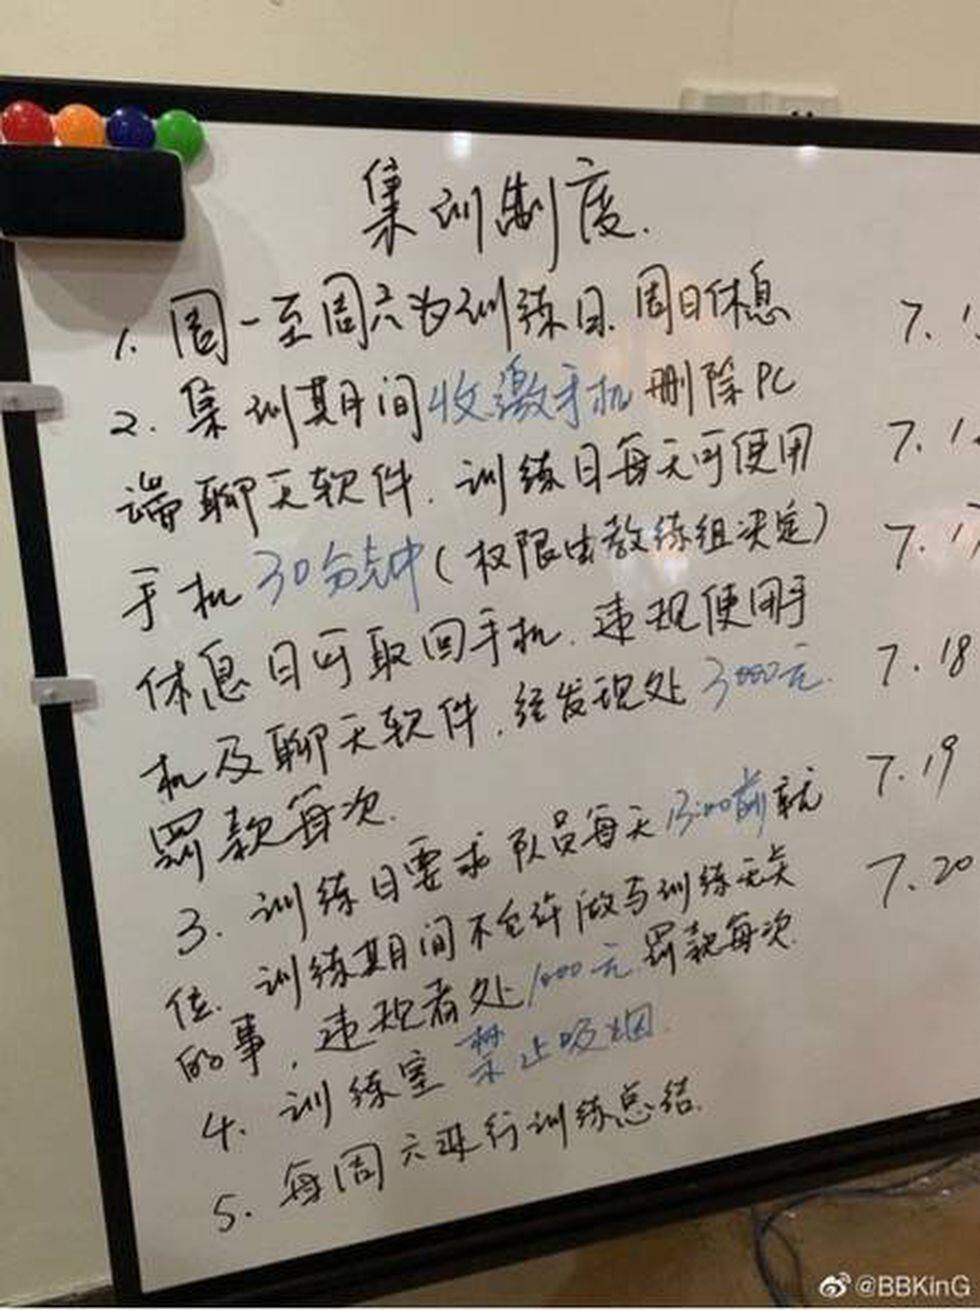 集训制度.
1. 周一至周六为训练日.周日休息
2. 集训期间收缴手机 删除PC
端聊天软件.训练日每天可使用
手机30分钟(权限由教练组决定)
休息日可取回手机.违规使用手
机及聊天软件.经发现处3000元
罚款每次.
3. 训练日要求队员每天13:00前就
位.训练期间不允许做与训练无关
的事,违规者处1000元罚款每次.
4. 训练室禁止吸烟.
5. 每周六进行训练总结.
7.18
7.19
7.20
@BBKinG